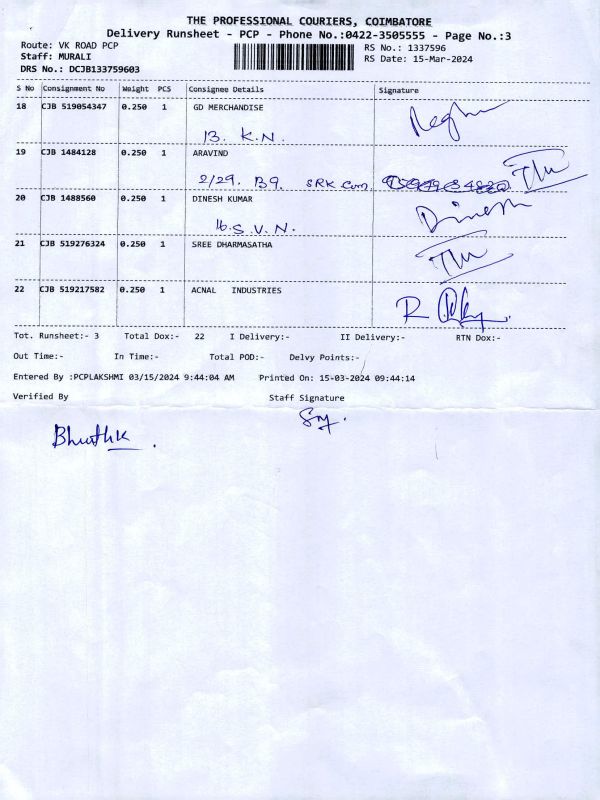 THE PROFESSIONAL COURIERS, COIMBATORE
Delivery Runsheet - PCP - Phone No.:0422-3505555 - Page No.:3
Route: VK ROAD PCP
Staff: MURALI
DRS No.: DCJB133759603
RS No.: 1337596
RS Date: 15-Mar-2024
S No Consignment No Weight PCS Consignee Details Signature
18 CJB 519054347 0.250 1 GD MERCHANDISE
13. K.N.
19 CJB 1484128 0.250 1 ARAVIND
2/29. B9. SRK Com.
20 CJB 1488560 0.250 1 DINESH KUMAR Dinesh
16. S.V.N.
21 CJB 519276324 0.250 1 SREE DHARMASATHA
22 CJB 519217582 0.250 1 ACNAL INDUSTRIES
Tot. Runsheet:- 3 Total Dox:- 22 I Delivery:- II Delivery:- RTN Dox:-
Out Time:- In Time:- Total POD:- Delvy Points:-
Entered By :PCPLAKSHMI 03/15/2024 9:44:04 AM Printed On: 15-03-2024 09:44:14
Verified By Staff Signature